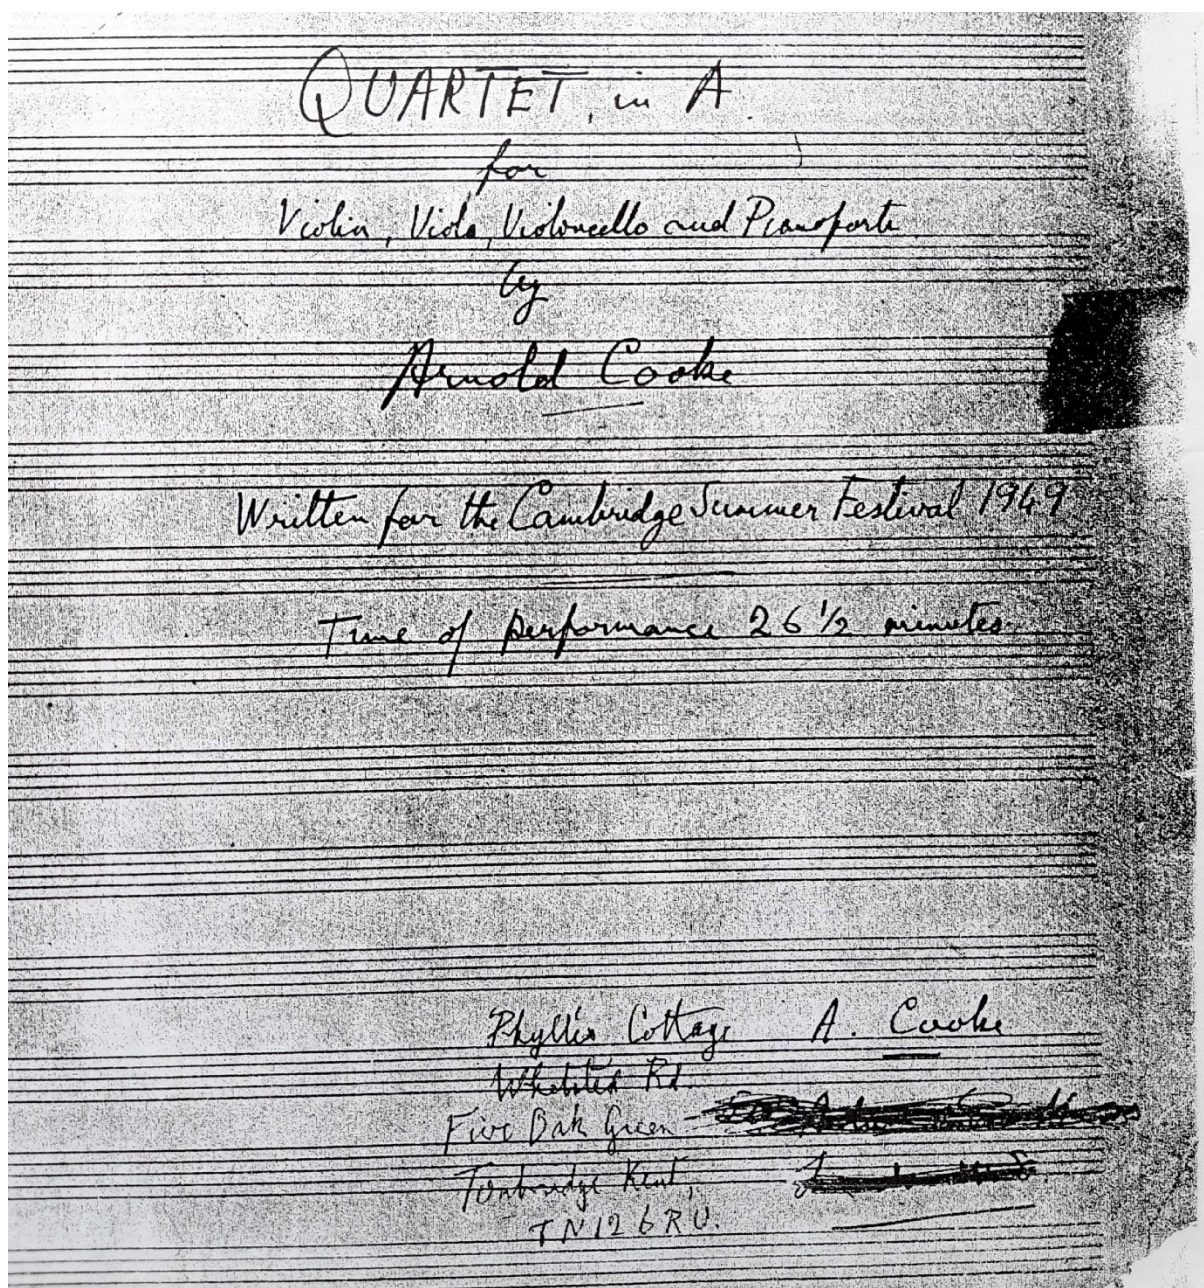 QUARTET, in A
for
Violin, Viola, Violoncello and Pianoforte
by
Arnold Cooke
Written for the Cambridge Summer Festival 1949
Time of performance 26 1/2 minutes.
Phyllis Cottage A. Cooke
Whetsted Rd.
Five Oak Green
Tonbridge Kent,
TN12 6RU.